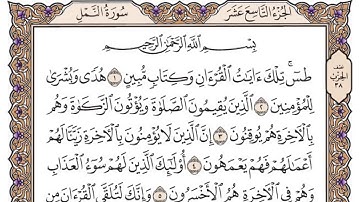 الجزء التاسع عشر
سورة النمل
نصف
الحزب
٣٨
بِسْمِ ٱللَّهِ ٱلرَّحْمَٰنِ ٱلرَّحِيمِ
طسٓ ۚ تِلْكَ ءَايَٰتُ ٱلْقُرْءَانِ وَكِتَابٍ مُّبِينٍ ١ هُدًى وَبُشْرَىٰ
لِلْمُؤْمِنِينَ ٢ ٱلَّذِينَ يُقِيمُونَ ٱلصَّلَوٰةَ وَيُؤْتُونَ ٱلزَّكَوٰةَ وَهُم
بِٱلْءَاخِرَةِ هُمْ يُوقِنُونَ ٣ إِنَّ ٱلَّذِينَ لَا يُؤْمِنُونَ بِٱلْءَاخِرَةِ زَيَّنَّا لَهُمْ
أَعْمَٰلَهُمْ فَهُمْ يَعْمَهُونَ ٤ أُو۟لَٰٓئِكَ ٱلَّذِينَ لَهُمْ سُوٓءُ ٱلْعَذَابِ
وَهُمْ فِى ٱلْءَاخِرَةِ هُمُ ٱلْأَخْسَرُونَ ٥ وَإِنَّكَ لَتُلَقَّى ٱلْقُرْءَانَ مِن